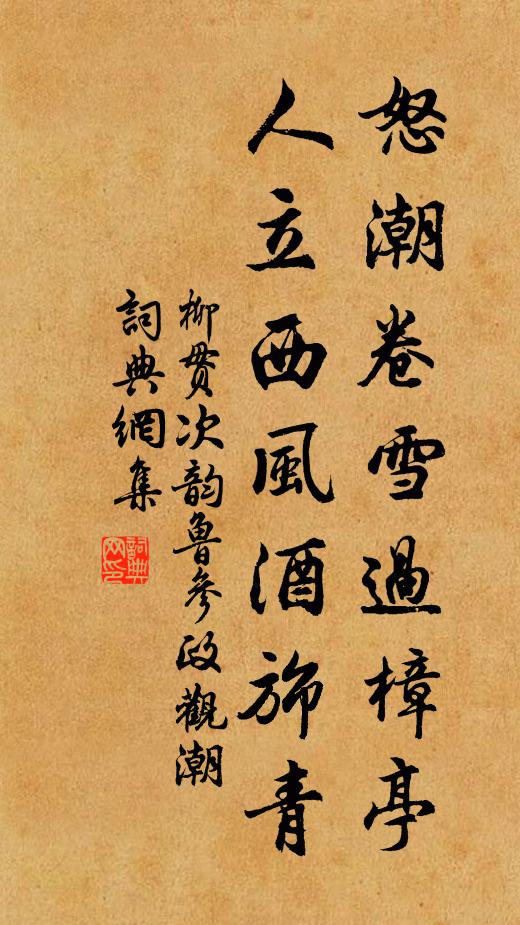 怒潮卷雪過樟亭
人立西風酒旆青
柳貫次韵魯參政觀潮
詞典網集
詞典
网印